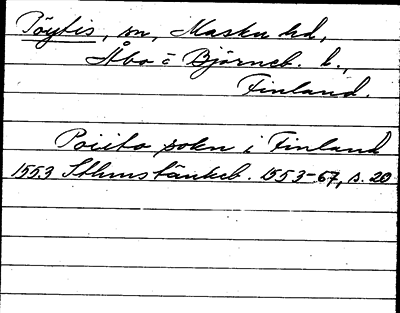 Pöytis, sn, Masku hd,
Åbo o Björneb. l.,
Finland.
Poiito sokn i Finland
1553 Sthms tänkeb. 1553-67, s. 20